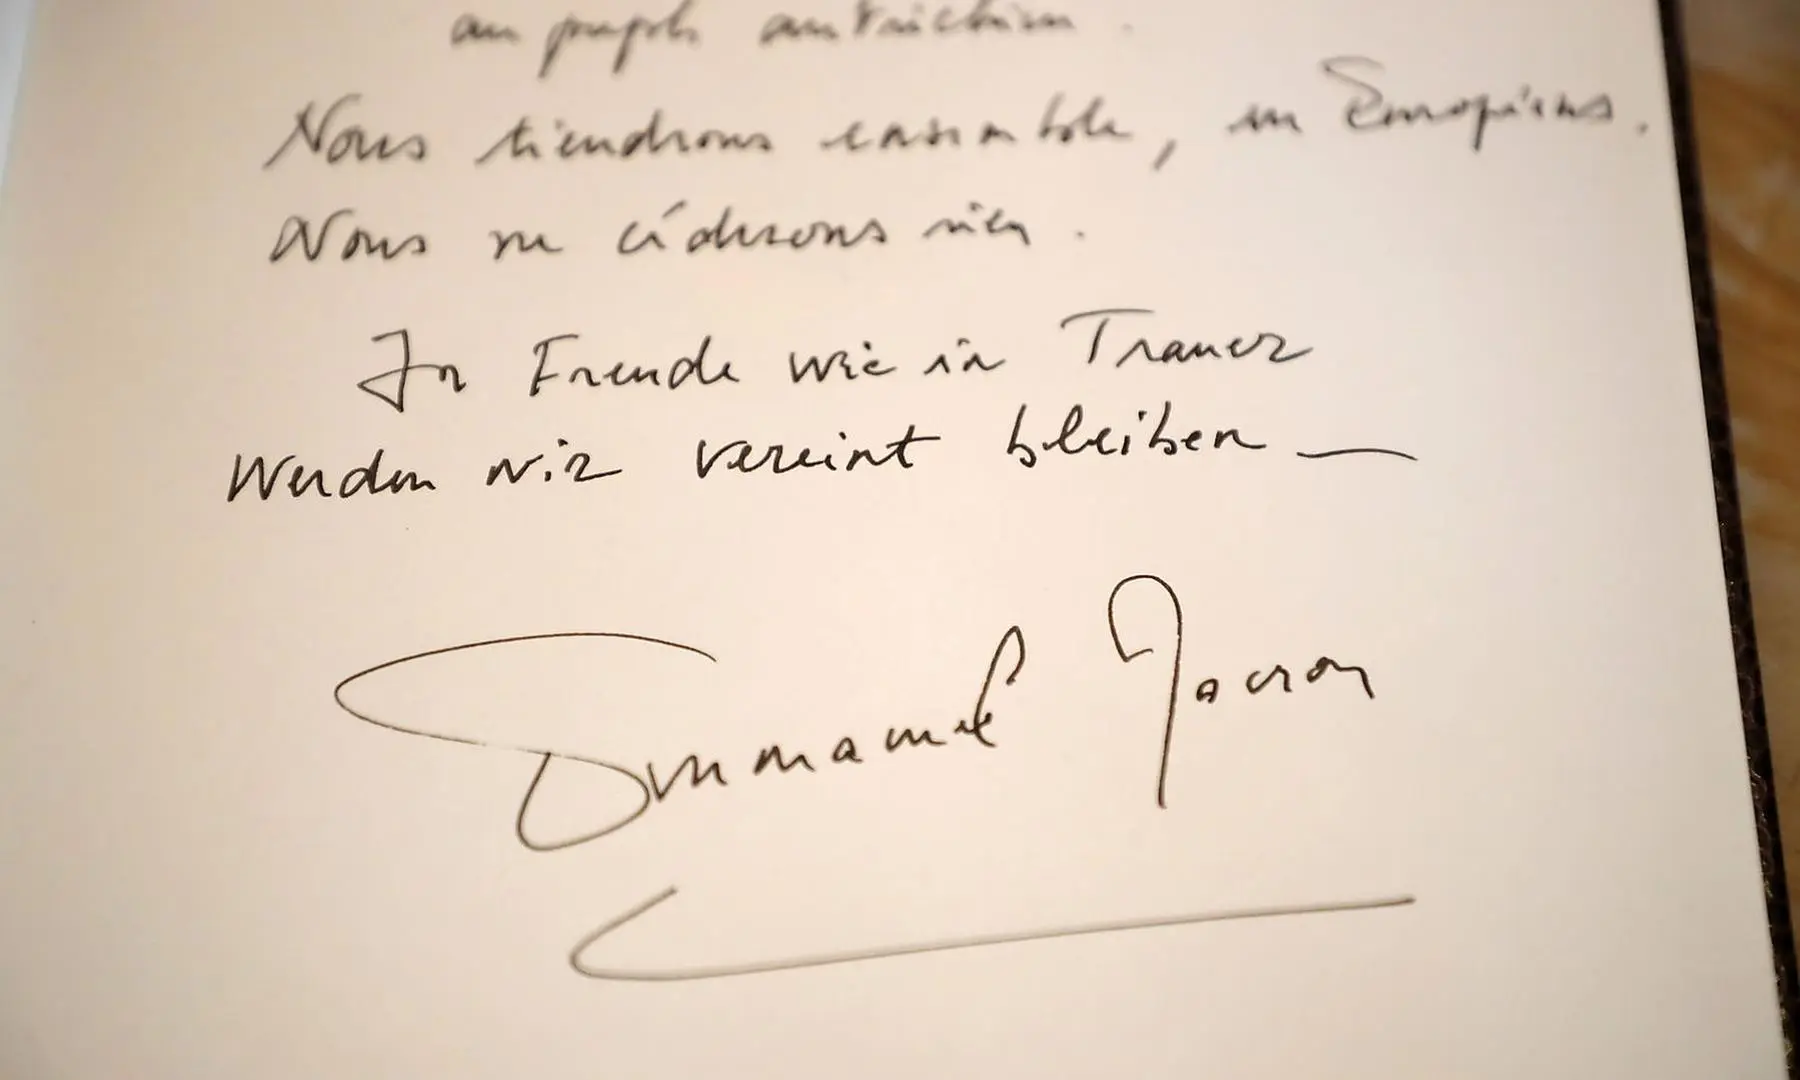 au peuple autrichien.
Nous tiendrons ensemble, en Européens.
Nous ne céderons rien.
In Freude wie in Trauer
werden wir vereint bleiben —
Emmanuel Macron